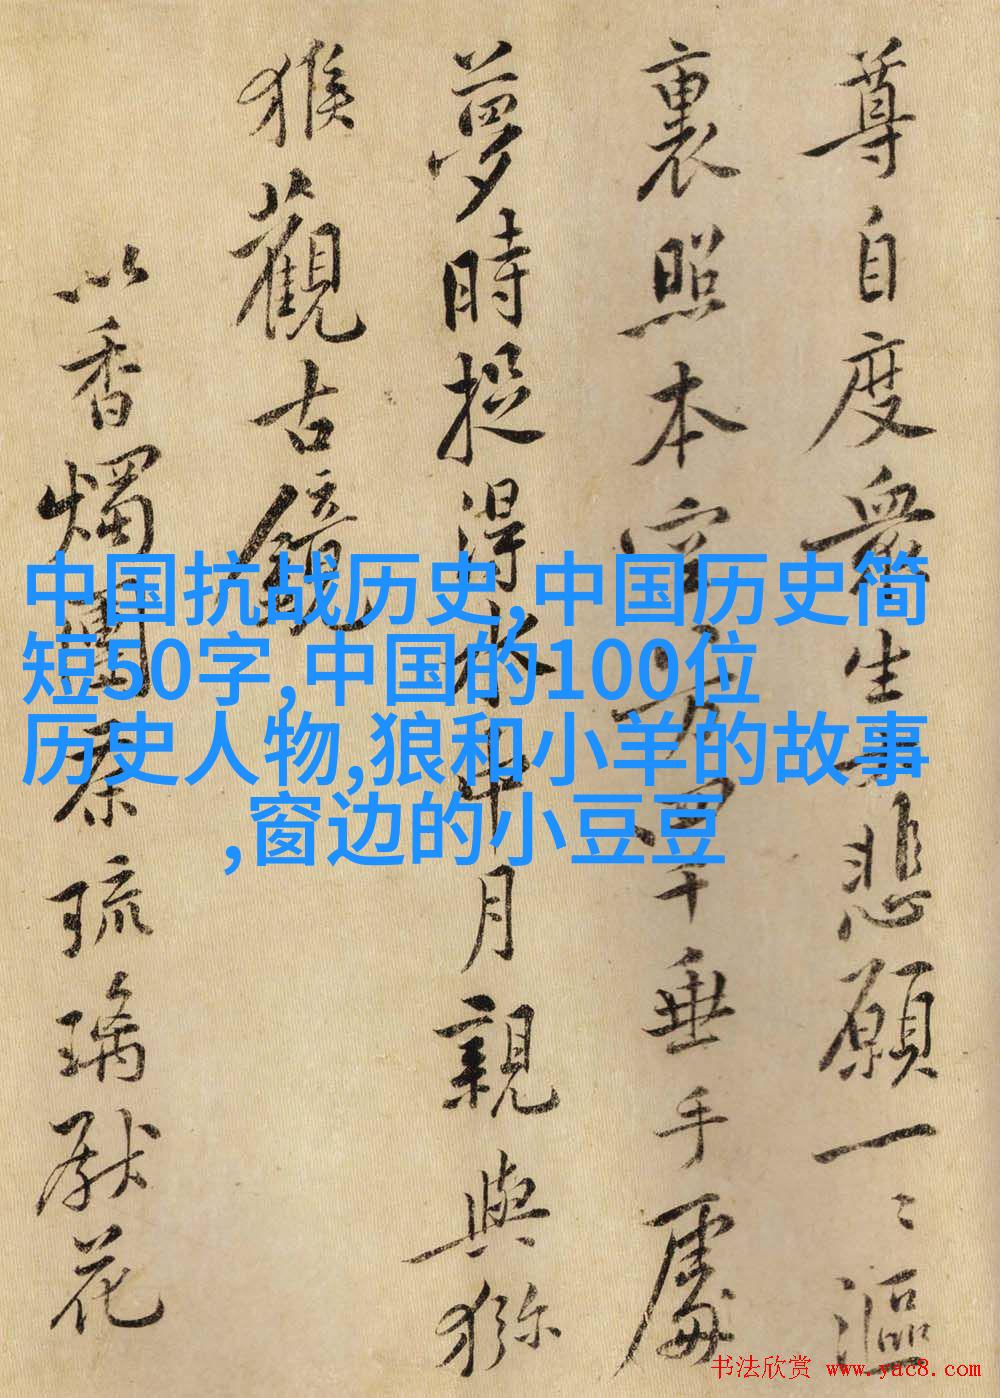 尊自度衆生悲願一二漚
裏照本空垂手處
夢時捉得水中月親與獼
猴觀古鏡
以香燭茶琉璃獻花
中国抗战历史,中国历史简
短50字,中国的100位
历史人物,狼和小羊的故事
,窗边的小豆豆
书法欣赏 www.yac8.com